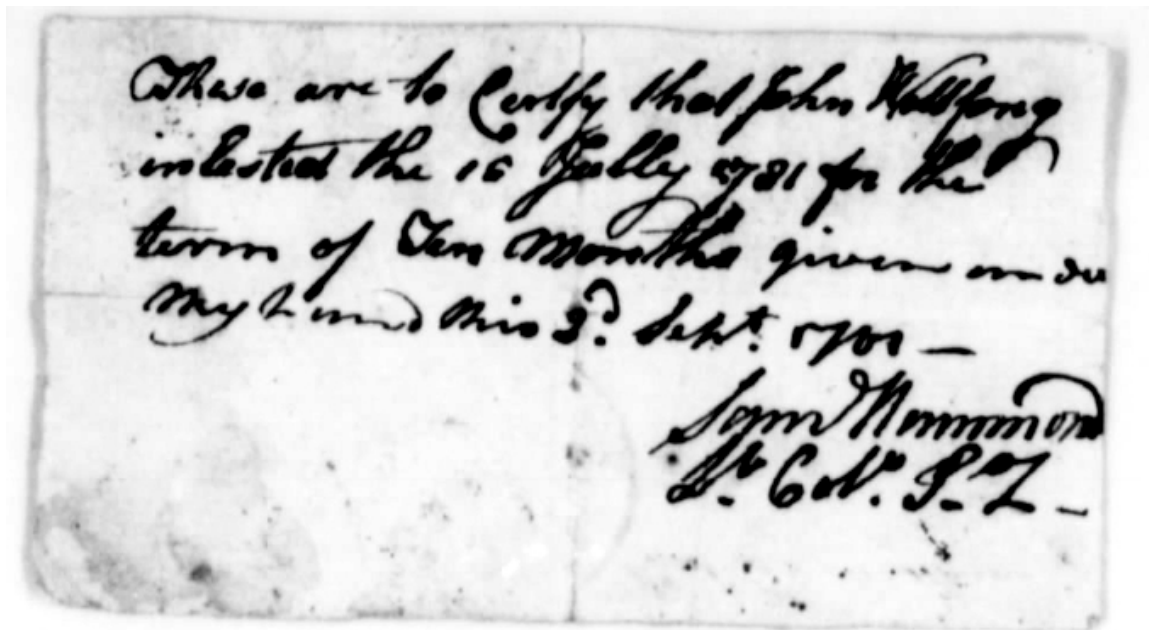 These are to Certify that John
inlested the 16 Jully 1781 for the
term of Ten Months given unde
My hand this 3d. Sept. 1781 —
Saml Hammond
Lt. Coll.